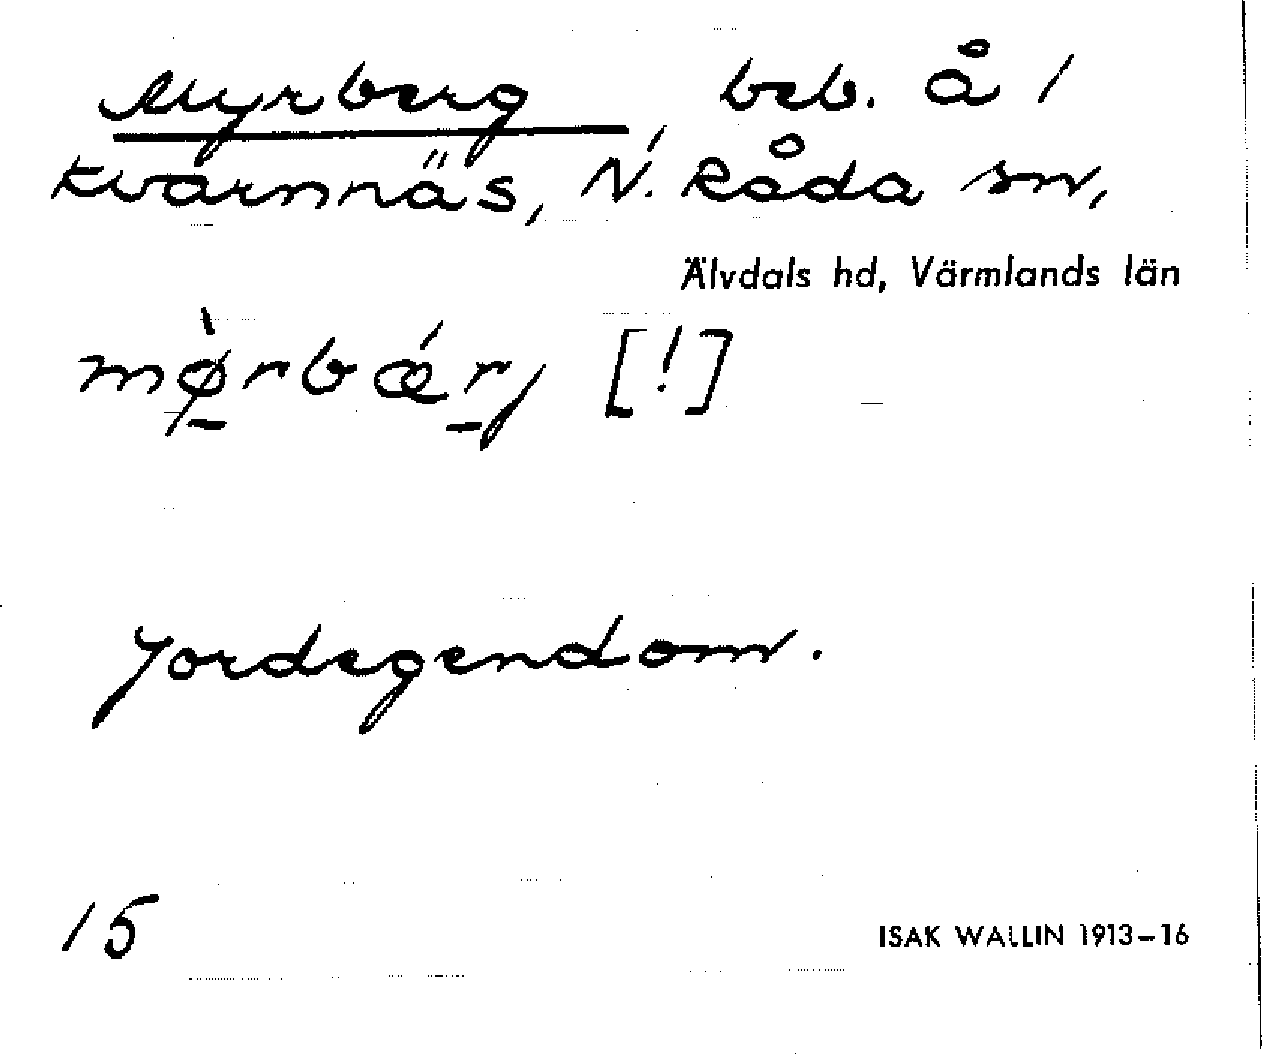 Myrberg, beb. å 1
Kvarnnäs, N. Råda sn,
Älvdals hd, Värmlands län
mø̱̀rbǽṟj [!]
Jordegendom.
15
ISAK WALLIN 1913–16